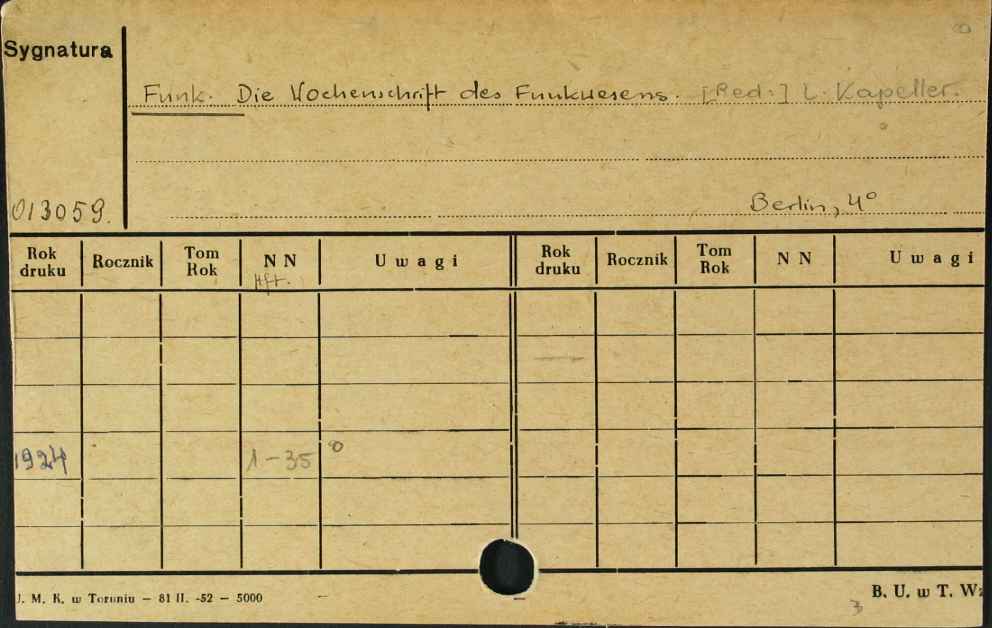 Sygnatura
Funk. Die Wochenschrift des Funkwesens. [Red:] L. Kapeller.
013059.
Berlin, 4°
Rok druku Rocznik Tom Rok NN Uwagi Rok druku Rocznik Tom Rok NN Uwagi
Hft.
1924 1-35 0
U. M. K. w Toruniu — 81 II. -52 — 5000
B. U. w T. Wz
3